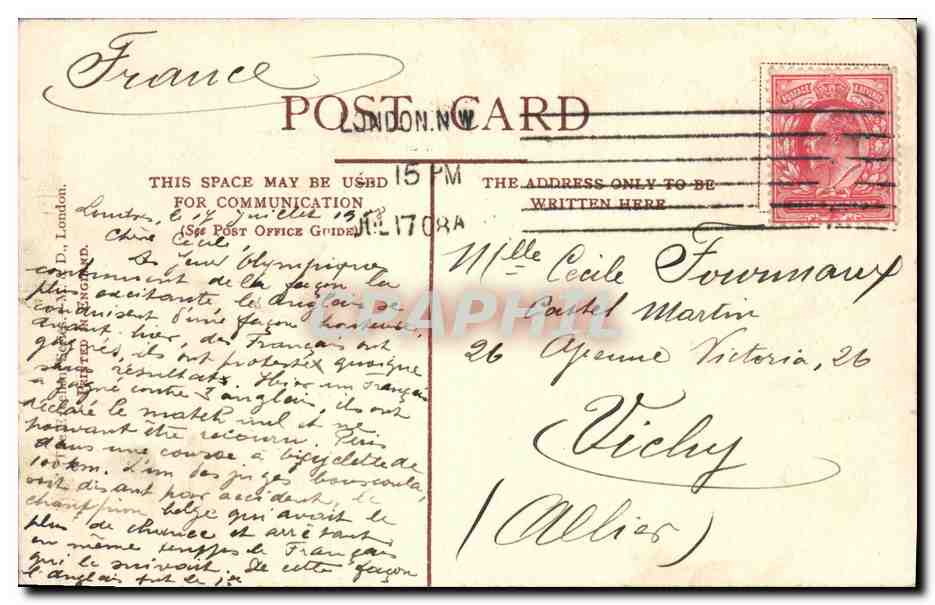 France
POST CARD
LONDON.N.W
15 PM
JUL 17 08 A
THIS SPACE MAY BE USED
FOR COMMUNICATION
(See Post Office Guide)
THE ADDRESS ONLY TO BE
WRITTEN HERE
POSTAGE REVENUE
D., London.
Printed in England.
Londres, le 17 Juillet 1908
Chère Cécile
Les Jeux Olympique
continuent de la façon la
plus excitante les anglais se
conduisent d'une façon honteuse,
avant hier, des Français ont
ils ont protesté quoique
sans résultats. Hier un Français
a gagné contre 3 anglais, ils ont
déclaré le match nul et ne
pouvant être recouru. Puis
dans une course à bicyclette de
100 km. L'un des juges bouscoula,
soit disant par accident, le
champpion belge qui avait le
plus de chance et arrêtant
en même temps le Français
qui le suivait. De cette façon
l'anglais fut le 1er
Mlle Cécile Fournaux
Castel Martin
26 Avenue Victoria, 26
Vichy
(Allier)
CPAPHIL